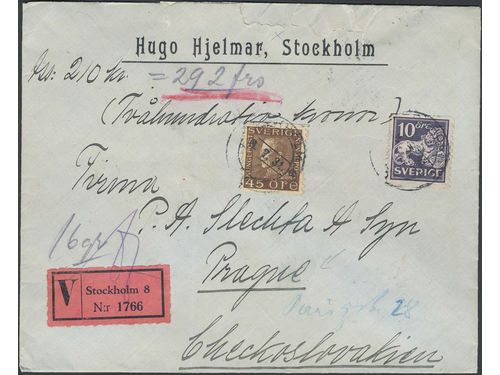 Hugo Hjelmar, Stockholm
210 kr. = 292 frs
(Tvåhundratio kronor)
SVERIGE
45 ÖRE
10 öre
SVERIGE
Firma
P. A. Slechta & Syn
16 gr
Prague
V Stockholm 8
N:r 1766
28
Checkoslovakien